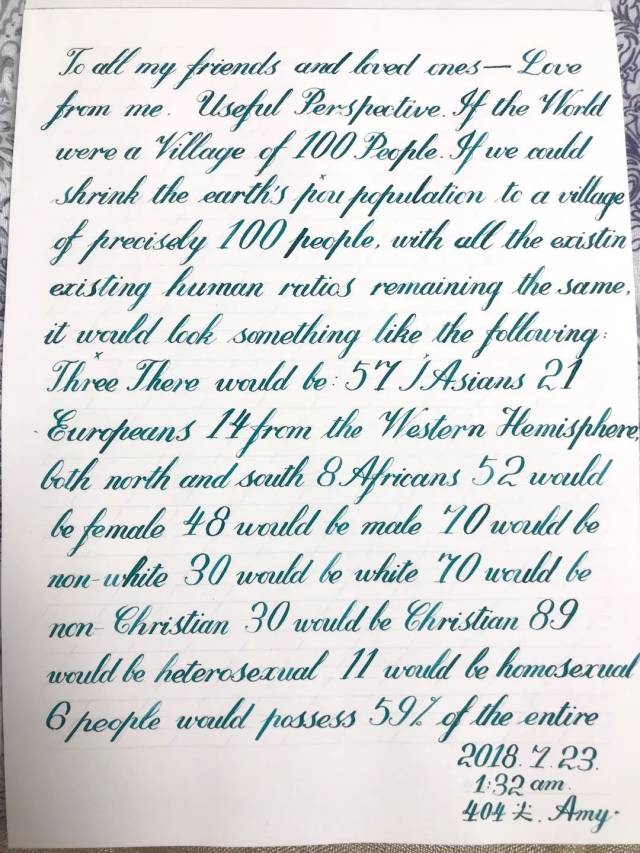 To all my friends and loved ones — Love
from me. Useful Perspective. If the World
were a Village of 100 People. If we could
shrink the earth's pou population to a village
of precisely 100 people, with all the existin
existing human ratios remaining the same,
it would look something like the following:
Three There would be: 57 Asians 21
Europeans 14 from the Western Hemisphere,
both north and south 8 Africans 52 would
be female 48 would be male 70 would be
non-white 30 would be white 70 would be
non-Christian 30 would be Christian 89
would be heterosexual 11 would be homosexual
6 people would possess 59% of the entire
2018.7.23.
1:32 am.
404 尖. Amy.